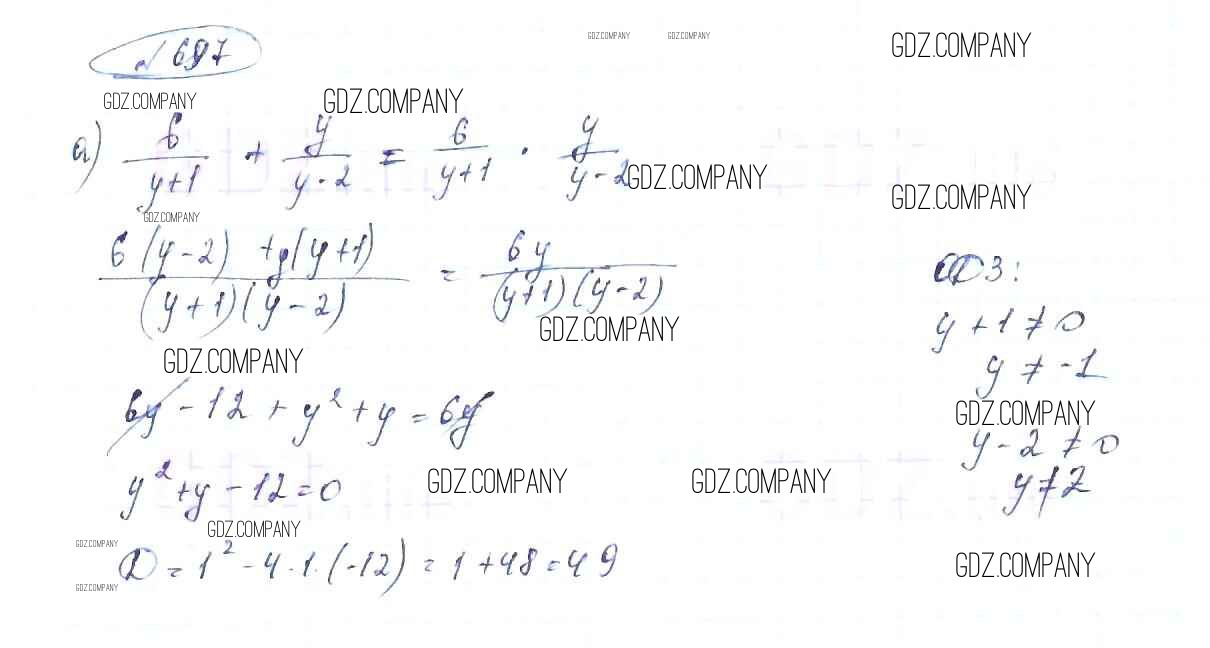 № 697
GDZ.COMPANY GDZ.COMPANY GDZ.COMPANY
GDZ.COMPANY GDZ.COMPANY
а) 6/(y+1) + y/(y-2) = 6/(y+1) · y/(y-2)
GDZ.COMPANY GDZ.COMPANY
GDZ.COMPANY
(6(y-2) + y(y+1))/((y+1)(y-2)) = 6y/((y+1)(y-2))
ОДЗ:
y+1≠0
GDZ.COMPANY
y≠-1
GDZ.COMPANY
6y - 12 + y² + y = 6y
GDZ.COMPANY
y-2≠0
y² + y - 12 = 0
GDZ.COMPANY GDZ.COMPANY
y≠2
GDZ.COMPANY
GDZ.COMPANY
D = 1² - 4·1·(-12) = 1 + 48 = 49
GDZ.COMPANY
GDZ.COMPANY